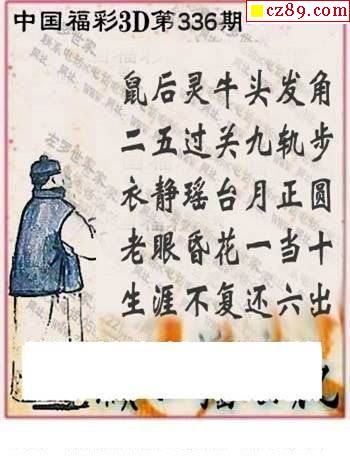 cz89.com
中国福彩3D第336期
鼠后灵牛头发角
二五过关九轨步
衣静瑶台月正圆
老眼昏花一当十
生涯不复还六出